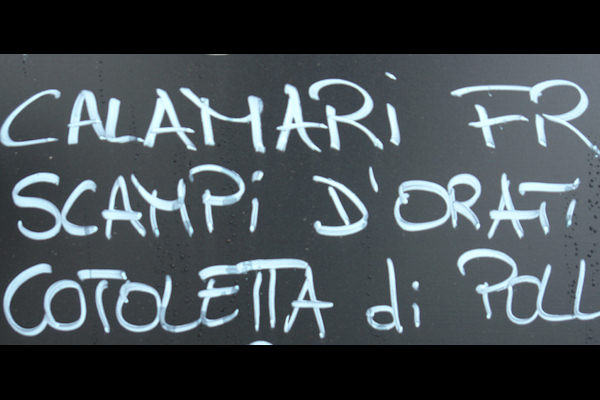 CALAMARi FR
SCAMPi D'ORATi
COTOLETTA di POLL